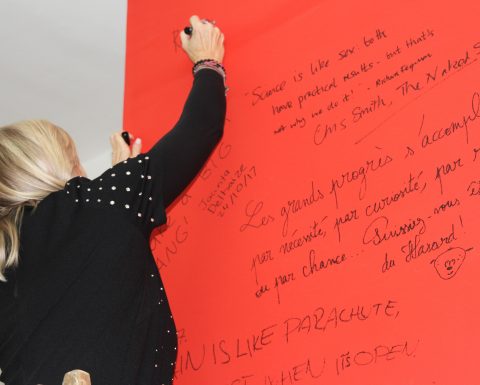 Science is like sex: both
have practical results - but that's
not why we do it! - Richard Feynman
Chris Smith, The Naked S
Delphine
24/10/17
ANG!
Les grands progrès s'accompli
par nécessité, par curiosité, par r
ou par chance... Puissiez-vous
du Hasard!
IN IS LIKE PARACHUTE,
WHEN IT'S OPEN